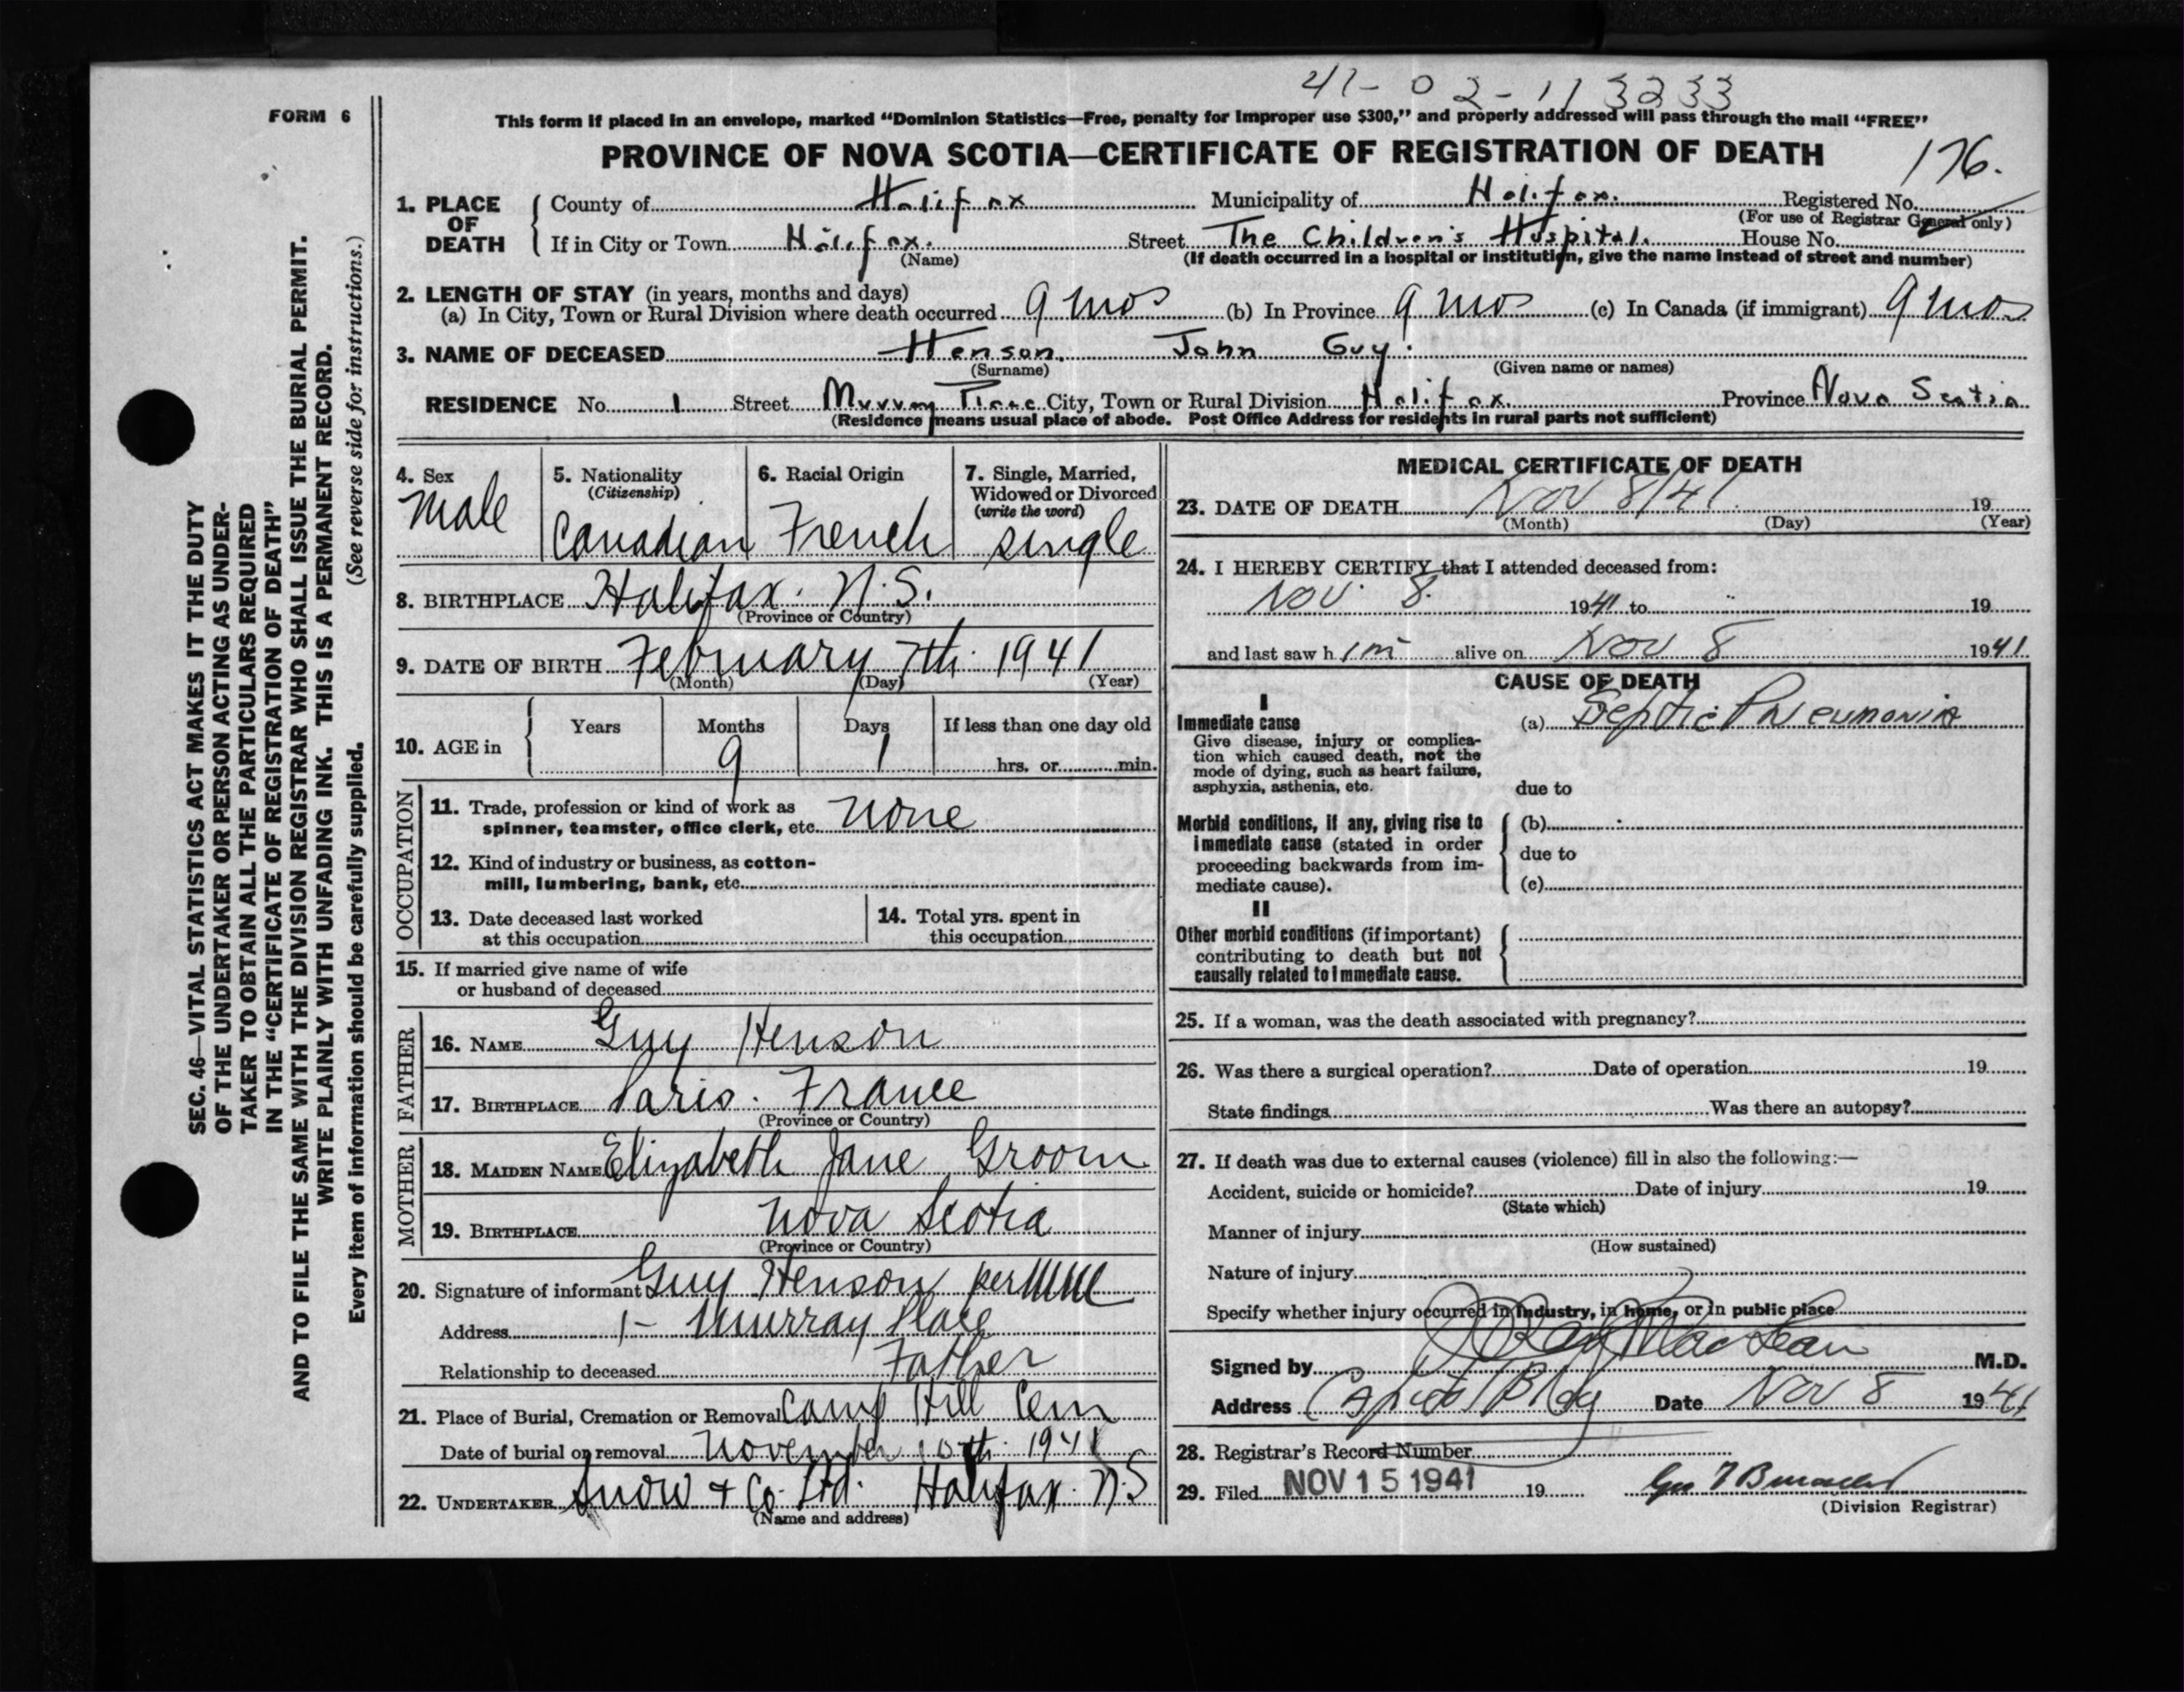 41-02-113233
FORM 6
This form if placed in an envelope, marked "Dominion Statistics—Free, penalty for improper use $300," and properly addressed will pass through the mail "FREE"
PROVINCE OF NOVA SCOTIA—CERTIFICATE OF REGISTRATION OF DEATH
176.
1. PLACE OF DEATH
County of Halifax Municipality of Halifax. Registered No.
(For use of Registrar General only)
If in City or Town Halifax. Street The Children's Hospital. House No.
(Name) (If death occurred in a hospital or institution, give the name instead of street and number)
2. LENGTH OF STAY (in years, months and days)
(a) In City, Town or Rural Division where death occurred 9 mos (b) In Province 9 mos (c) In Canada (if immigrant) 9 mos
3. NAME OF DECEASED Henson. John Guy.
(Surname) (Given name or names)
RESIDENCE No. 1 Street Murray Place City, Town or Rural Division Halifax. Province Nova Scotia
(Residence means usual place of abode. Post Office Address for residents in rural parts not sufficient)
4. Sex
male
5. Nationality
(Citizenship)
Canadian
6. Racial Origin
French
7. Single, Married,
Widowed or Divorced
(write the word)
single
8. BIRTHPLACE Halifax. N.S.
(Province or Country)
9. DATE OF BIRTH February 7th 1941
(Month) (Day) (Year)
10. AGE in
Years Months Days If less than one day old
9 1 hrs. or min.
OCCUPATION
11. Trade, profession or kind of work as
spinner, teamster, office clerk, etc. None
12. Kind of industry or business, as cotton-
mill, lumbering, bank, etc.
13. Date deceased last worked
at this occupation
14. Total yrs. spent in
this occupation
15. If married give name of wife
or husband of deceased
FATHER
16. NAME Guy Henson
17. BIRTHPLACE Paris. France
(Province or Country)
MOTHER
18. MAIDEN NAME Elizabeth Jane Groom
19. BIRTHPLACE Nova Scotia
(Province or Country)
20. Signature of informant Guy Henson per
Address 1- Murray Place
Relationship to deceased Father
21. Place of Burial, Cremation or Removal Camp Hill Cem
Date of burial or removal November 10th. 1941
22. UNDERTAKER Snow & Co. Ltd. Halifax. N.S
(Name and address)
MEDICAL CERTIFICATE OF DEATH
23. DATE OF DEATH Nov 8/41 19
(Month) (Day) (Year)
24. I HEREBY CERTIFY that I attended deceased from:
Nov. 8. 1941 to 19
and last saw him alive on Nov 8 1941
CAUSE OF DEATH
I
Immediate cause
Give disease, injury or complica-
tion which caused death, not the
mode of dying, such as heart failure,
asphyxia, asthenia, etc.
(a) Septic Pneumonia
due to
Morbid conditions, if any, giving rise to
immediate cause (stated in order
proceeding backwards from im-
mediate cause).
(b)
due to
(c)
II
Other morbid conditions (if important)
contributing to death but not
causally related to immediate cause.
25. If a woman, was the death associated with pregnancy?
26. Was there a surgical operation? Date of operation 19
State findings Was there an autopsy?
27. If death was due to external causes (violence) fill in also the following:—
Accident, suicide or homicide? Date of injury 19
(State which)
Manner of injury
(How sustained)
Nature of injury
Specify whether injury occurred in industry, in home, or in public place
Signed by MacLean M.D.
Address Capitol Bldg Date Nov 8 1941
28. Registrar's Record Number
29. Filed NOV 15 1941 19
(Division Registrar)
SEC. 46—VITAL STATISTICS ACT MAKES IT THE DUTY
OF THE UNDERTAKER OR PERSON ACTING AS UNDER-
TAKER TO OBTAIN ALL THE PARTICULARS REQUIRED
IN THE "CERTIFICATE OF REGISTRATION OF DEATH"
AND TO FILE THE SAME WITH THE DIVISION REGISTRAR WHO SHALL ISSUE THE BURIAL PERMIT.
WRITE PLAINLY WITH UNFADING INK. THIS IS A PERMANENT RECORD.
Every item of information should be carefully supplied. (See reverse side for instructions.)